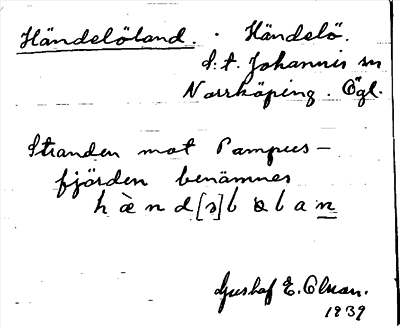 Händelöland. · Händelö.
S:t. Johannis sn
Norrköping. Ögl.
Stranden mot Pampus-
fjorden benämnes
Gustaf E. Olsson.
1939